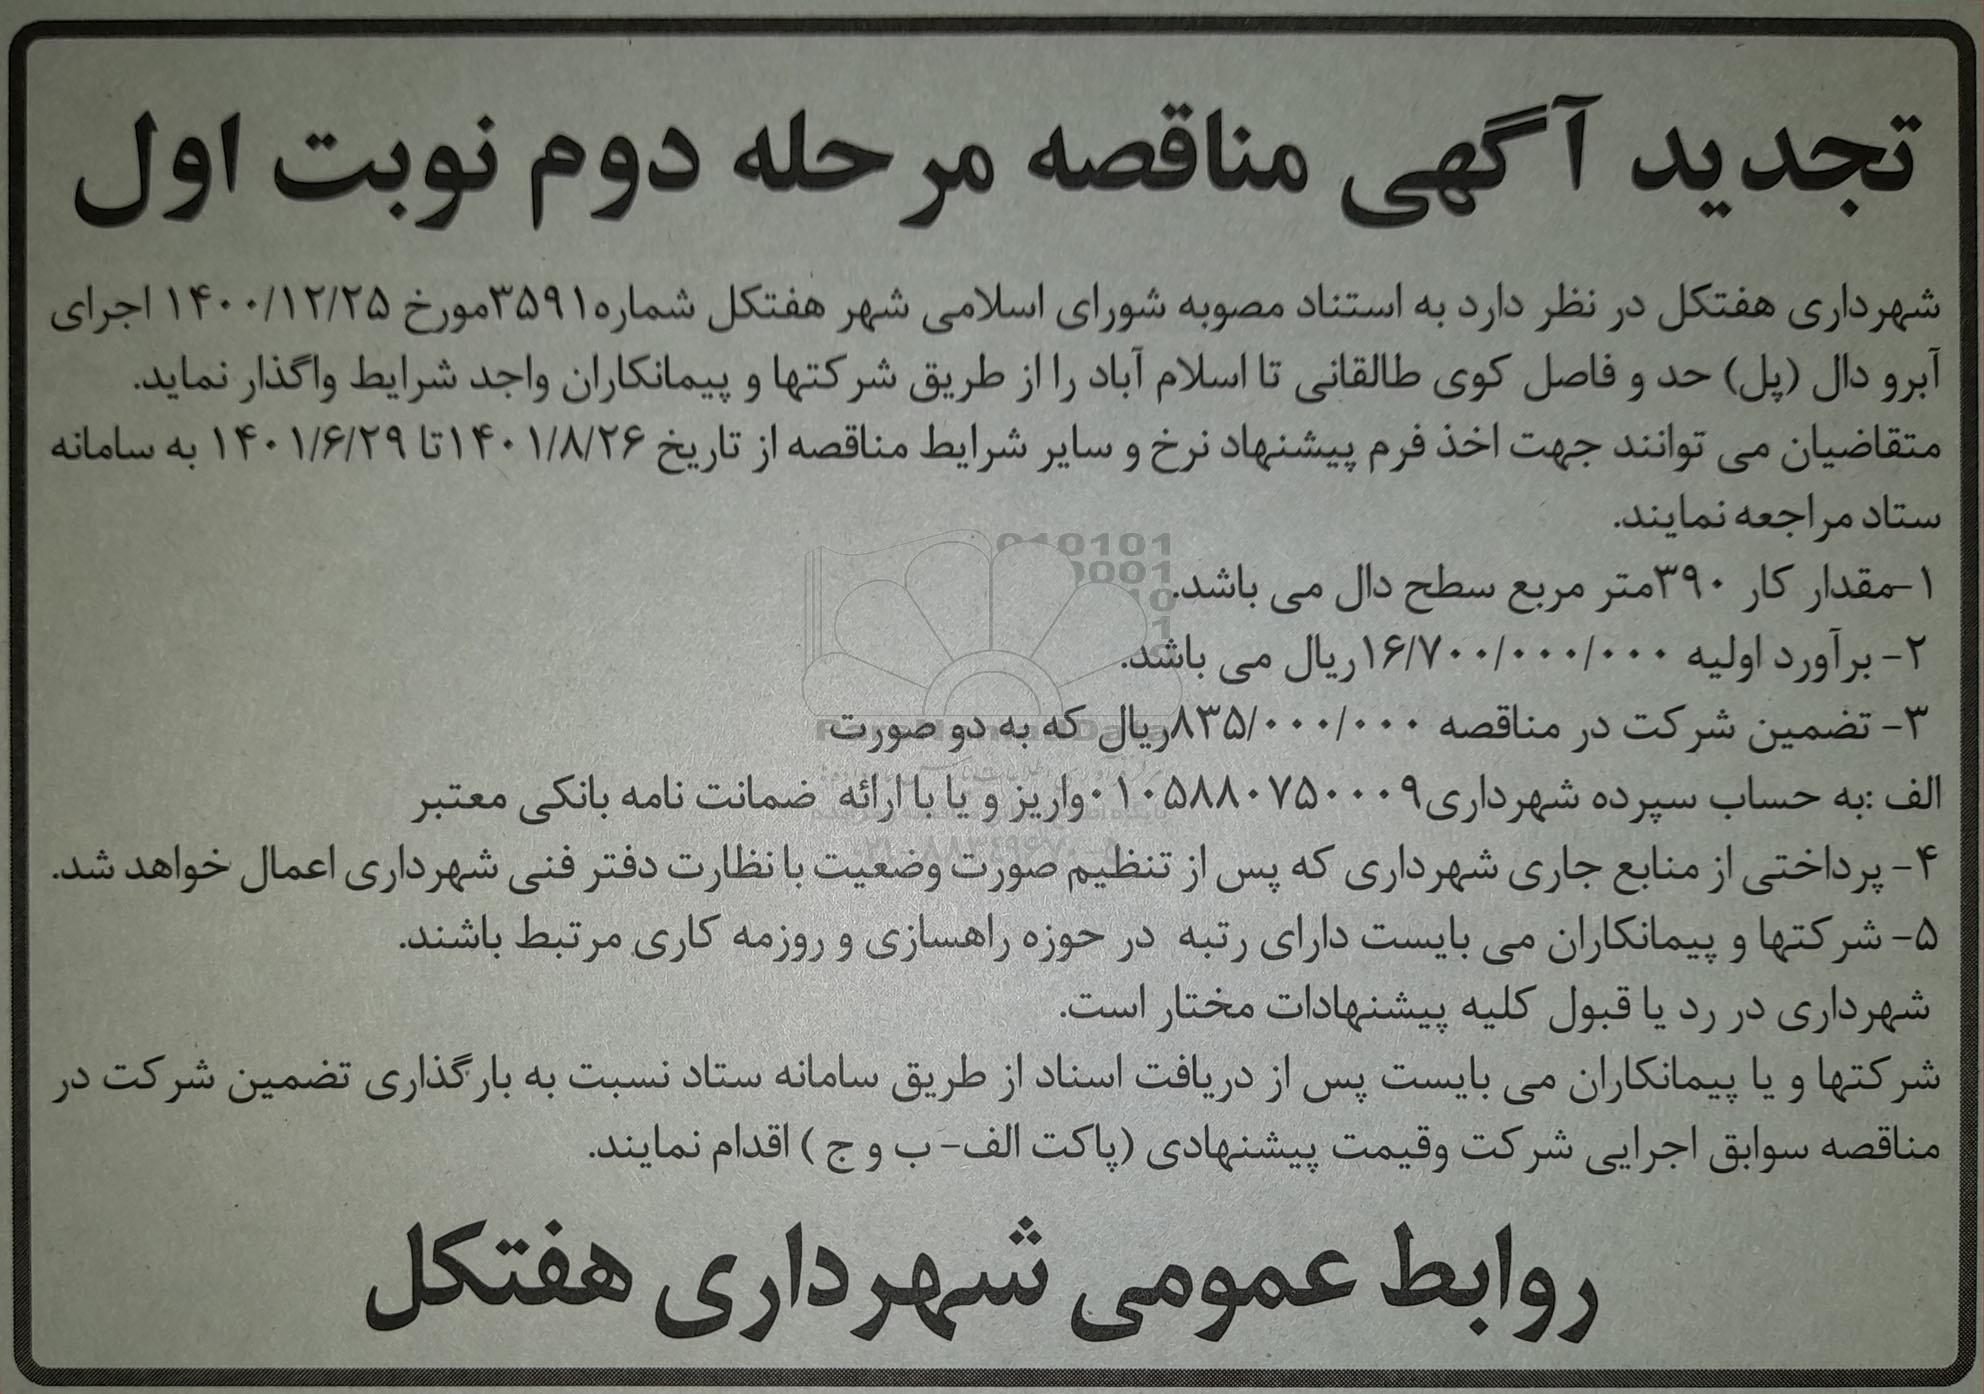 تجدید آگهی مناقصه مرحله دوم نوبت اول
شهرداری هفتکل در نظر دارد به استناد مصوبه شورای اسلامی شهر هفتکل شماره۳۵۹۱مورخ ۱۴۰۰/۱۲/۲۵ اجرای
آبرو دال (پل) حد و فاصل کوی طالقانی تا اسلام آباد را از طریق شرکتها و پیمانکاران واجد شرایط واگذار نماید.
متقاضیان می توانند جهت اخذ فرم پیشنهاد نرخ و سایر شرایط مناقصه از تاریخ ۱۴۰۱/۸/۲۶تا ۱۴۰۱/۶/۲۹ به سامانه
ستاد مراجعه نمایند.
۱-مقدار کار ۳۹۰متر مربع سطح دال می باشد.
۲- برآورد اولیه ۱۶/۷۰۰/۰۰۰/۰۰۰ریال می باشد.
۳- تضمین شرکت در مناقصه ۸۳۵/۰۰۰/۰۰۰ریال که به دو صورت
الف :به حساب سپرده شهرداری۰۱۰۵۸۸۰۷۵۰۰۰۹واریز و یا با ارائه ضمانت نامه بانکی معتبر
۴- پرداختی از منابع جاری شهرداری که پس از تنظیم صورت وضعیت با نظارت دفتر فنی شهرداری اعمال خواهد شد.
۵- شرکتها و پیمانکاران می بایست دارای رتبه در حوزه راهسازی و روزمه کاری مرتبط باشند.
شهرداری در رد یا قبول کلیه پیشنهادات مختار است.
شرکتها و یا پیمانکاران می بایست پس از دریافت اسناد از طریق سامانه ستاد نسبت به بارگذاری تضمین شرکت در
مناقصه سوابق اجرایی شرکت وقیمت پیشنهادی (پاکت الف- ب و ج ) اقدام نمایند.
روابط عمومی شهرداری هفتکل